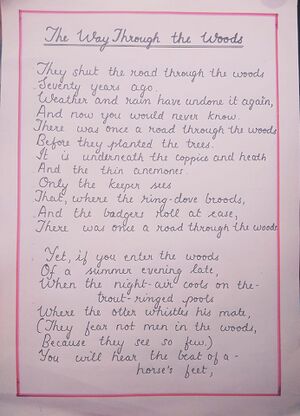 The Way Through the Woods
They shut the road through the woods
Seventy years ago.
Weather and rain have undone it again,
And now you would never know.
There was once a road through the woods
Before they planted the trees.
It is underneath the coppice and heath
And the thin anemones.
Only the keeper sees
That, where the ring-dove broods,
And the badgers roll at ease,
There was once a road through the woods
Yet, if you enter the woods
Of a summer evening late,
When the night-air cools on the-
trout-ringed pools
Where the otter whistles his mate,
(They fear not men in the woods,
Because they see so few.)
You will hear the beat of a-
horse's feet,